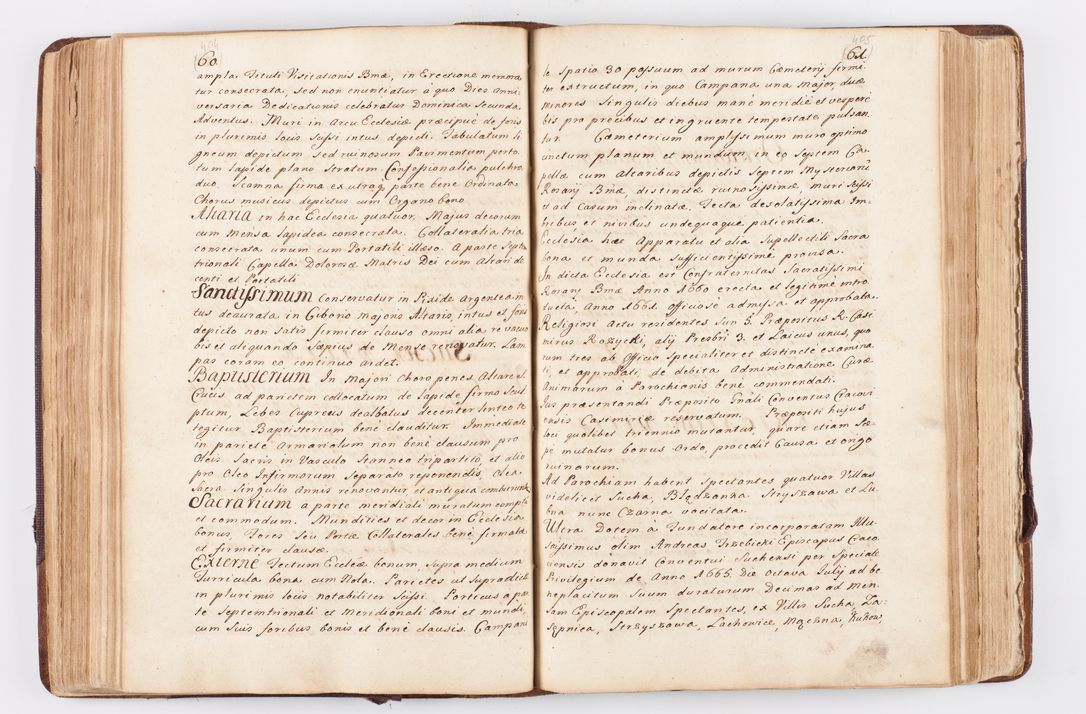 404
60.
ampla Tituli Visitationis Bmæ, in Erectione memora
tur consecrata, sed non enuntiatur à quo Dies Anni
versaria Dedicationis celebratur Dominica Secunda
Adventus. Muri in Arcu Ecclesiæ præcipuè de foris
in pluremis locis scissi intus depicti. Tabulatum li
gneum depictum sed ruinosum Pavimentum perto
tum lapide plano stratum Confessionalia pulchra
duo. Scamna firma ex utraq parte bene Ordinata.
Chorus musicus depictus cum Organo bono.
Altaria in hac Ecclesia quatuor. Majus decorum
cum Mensa lapidea consecrata. Collateralia tria
consecrata unum cum Portatili illæso. A parte Septe
trionali Capella Dolorosæ Matris Dei cum Altari de
centi et Portatili
Sanctissimum Conservatur in Pixide Argentea in
tus deaurata in Ciborio majoris Altaris, intus et foris
depicto non satis firmiter clauso omni alia re vacuo
bis et aliquando sæpius de Mense renovatur. Lam
pas coram eo continuo ardet.
Baptisterium In Majori Choro penes Altare S.
Crucis ad partem collocatum de lapide firmo Scul
ptum, Lebes Cupreus dealbatus decenter linteo te
tegitur Baptisterium bene clauditur. Immediate
in pariete Armariolum non benè clausum pro
Oleis Sacris in Vasculo Stanneo tripartito, et alio
pro Oleo Infirmorum separato reponendis, Olea
Sacra Singulis Annis renovantur, et antiqua comburuntur
Sacrarium a parte meridiali muratum compti
et commodum. Mundities et decor in Ecclesia
bonus, Fores seu Portæ Collaterales benè firmatæ
et firmiter clausæ.
Externè Tectum Ecclæ bonum, supra medium
Turricula bona cum Nola. Parietes ut supra dictæ
in plurimis locis notabiliter scissi. Porticus a par
te Septemtrionali et Meridionali boni et mundi,
cum suis foribus bonis et benè clausis. Campani
405
61.
le Spatio 30 passuum ad murum Cæmeterij firmi
ter extructum, in quo Campana una Major, duæ
minores Singulis diebus mane meridiè et vesperè
bis pro precibus et ingruente tempestate pulsan
tur. Cæmeterium amplissimum muro optimo
cinctum planum et mundum, in eo Septem Ca
pellæ cum Altaribus depictis Septem Mysteriorū
Rosarij Bmæ distinctæ ruinosissimæ, muri scissi
et ad Casum inclinatæ, Tecta desolatissima Im
bribus et nivibus undequaque patientia.
Ecclesia hæc Apparatu et alia Supellectili Sacra
bona et munda sufficientissimè provisa.
In dicta Ecclesia est Confraternitas Sacratissimi
Rosarij Bmæ Anno 1660 erecta et legitimè intro
ducta Anno 1661. officiosè admissa et approbata.
Religiosi Actu residentes sun 5. Præpositus R. Casi
mirus Rożycki, alij Presbri 3. et Laicus unus, quo
rum tres ab Officio Specialiter et distinctè examina
ti, et approbati, de debita Administratione Curæ
Animarum à Parochianis benè commendati.
Jus præsentandi Præposito Gnali Conventus Cracovi
ensis Casimiriæ reservatum. Præpositi hujus
loci quolibet triennio mutantur, quare etiam Sæ
pe mutatur bonus Ordo, procedit Causa et origo
ruinarum.
Ad Parochiam habent Spectantes quatuor Villas
videlicet Sucha, Błędzonka Stryszawa et Lu
bna nunc Czarna vocitata.
Ultra Dotem à Fundatore incorporatam Illu
strissimus olim Andreas Trzebicki Episcopus Craco
viensis donavit Conventui Suchensi per Speciale
Privilegium de Anno 1665. Die Octava Julij ad be
neplacitum Suum duraturum Decimas ad Men
sam Episcopalem Spectantes, ex Villis Sucha, Za
sępnica, Strzyszawa, Lachowice, Mączna, Kukow